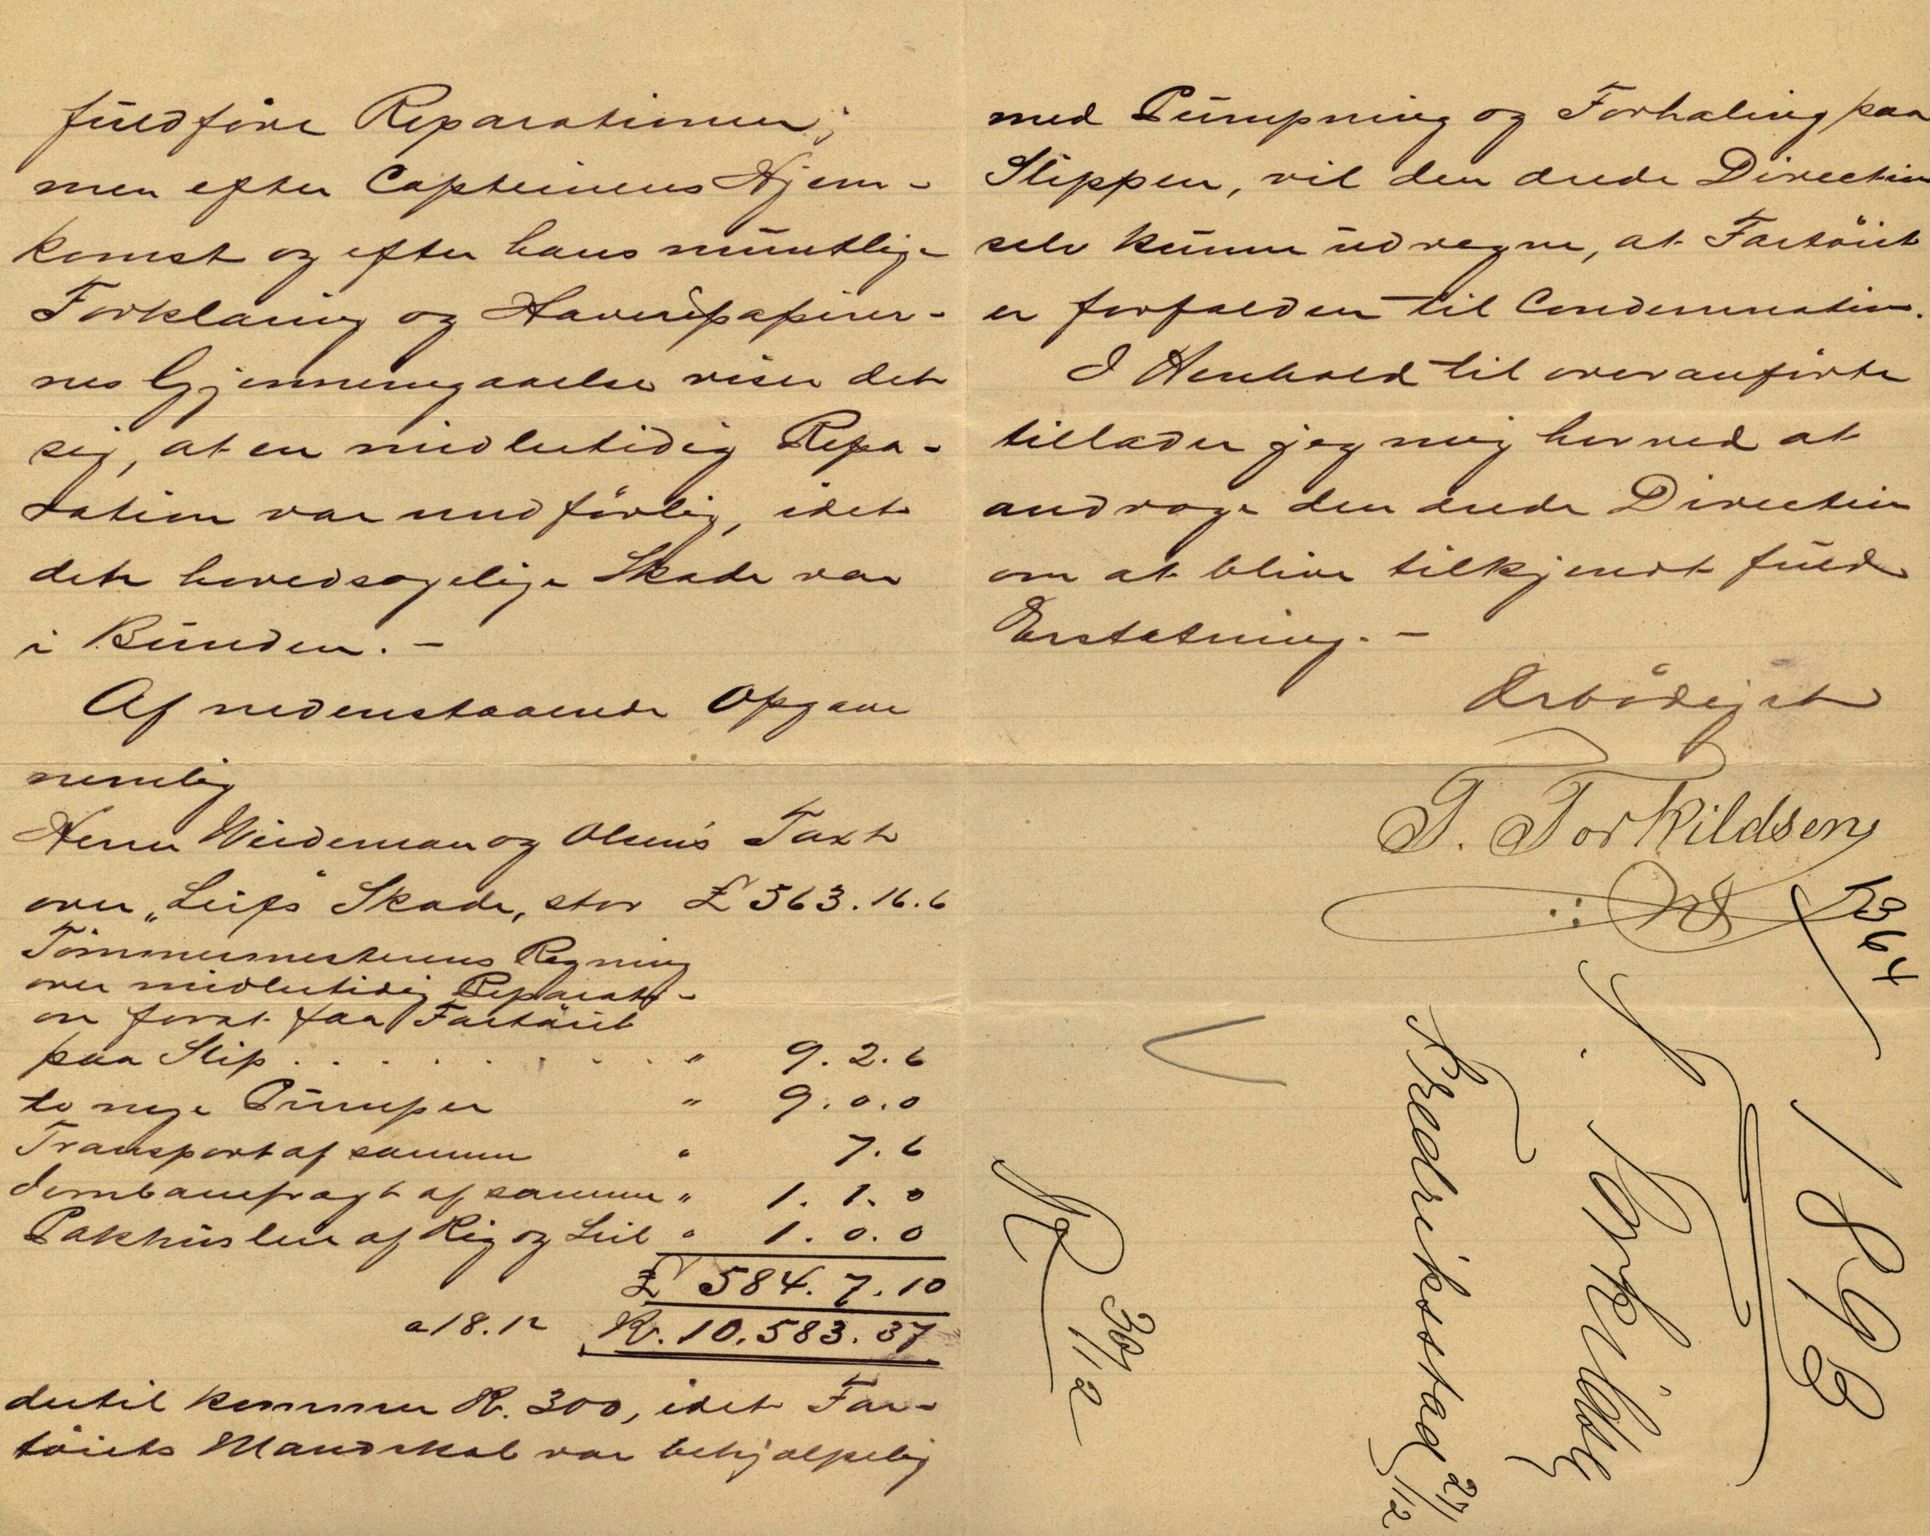 fuldføre Reparationen;
men efter Capteinens Hjem-
komst og efter hans mundtlige
Forklaring og Havaripapirer-
nes Gjennemgaaelse viser det
sig, at en midlertidig Repa-
ration var umdførlig, idet
den hovedsagelige Skade var
i Bunden. -
Af nedenstaaende Opgave
nemlig
Herrer Weideman og Olsen's Taxt
over "Leifs" Skade, stor £ 563.16.6
Tømmermesterens Regning
over midlertidig Reparati-
on forat faa Fartøiet
paa Slip . . . . . . . . . " 9.2.6
to nye Pumper " 9.0.0
Transport af samme " 7.6
Jernbanefragt af samme " 1.1.0
Pakhusleie af Rig og Seil " 1.0.0
£ 584.7.10
a 18.12 Kr. 10.583.37
dertil kommer Kr. 300, idet Far-
tøiets Mandskab var behjælpelig
med Pumpning og Forhaling paa
Slippen, vil den ærede Direction
selv kunne udregne, at Fartøiet
er forfalden til Condemnation.
I Henhold til ovenanførte
tillader jeg mig herved at
androge den ærede Direction
om at blive tilkjendt fuld
Erstatning. -
Ærbødigst
T. Torkildsen
1364
1893
T. Torkildsen
Fredriksstad 27/12
30/12